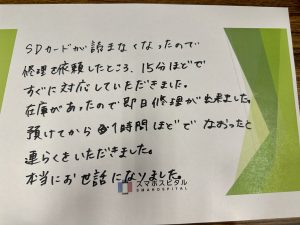 SDカードが読まなくなったので
修理を依頼したところ、15分ほどで
すぐに対応していただきました。
在庫があったので即日修理が出来ました。
預けてから約1時間ほどでなおったと
連らくをいただきました。
本当にお世話になりました。
スマホスピタル
SMAHOSPITAL